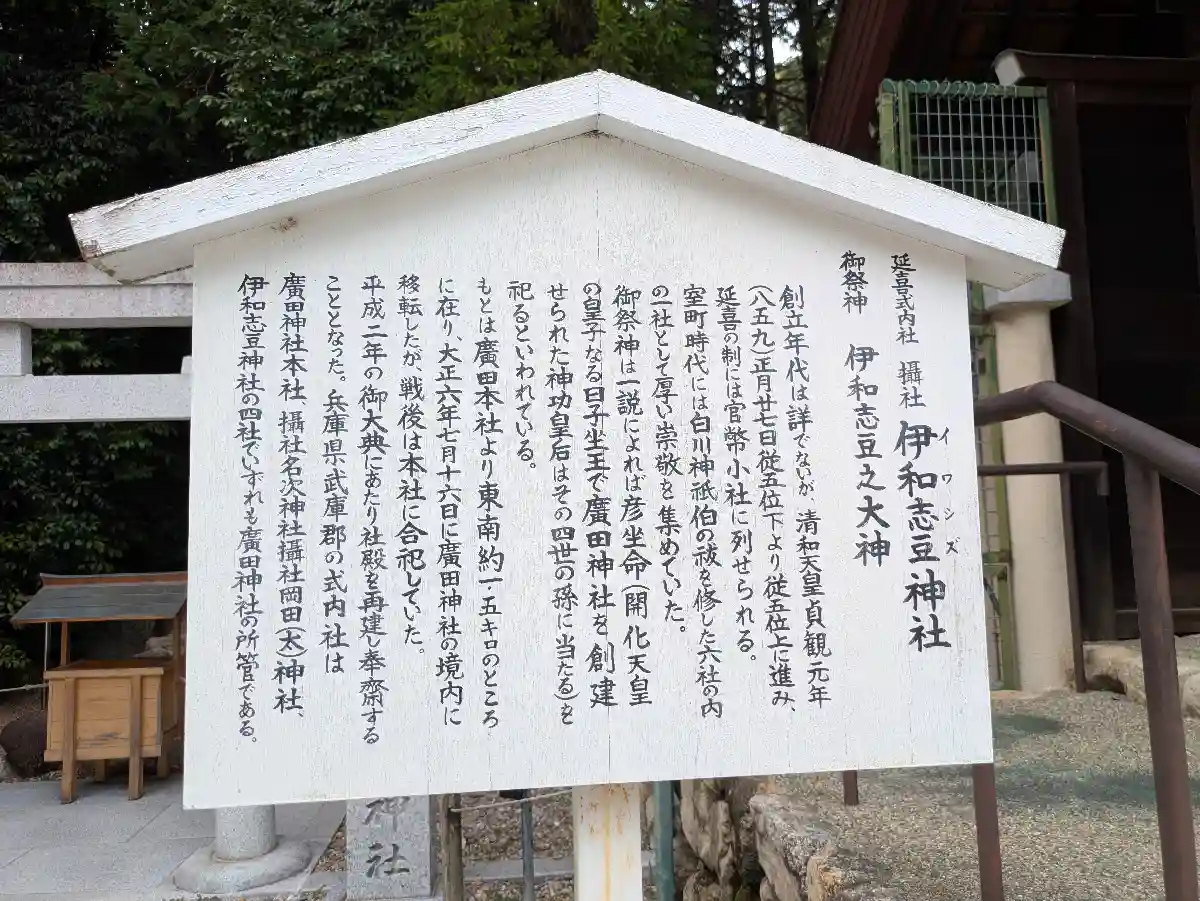 延喜式内社 攝社 伊和志豆神社
イワシズ
御祭神 伊和志豆之大神
創立年代は詳でないが、清和天皇貞観元年
(八五九)正月廿七日従五位下より従五位上に進み、
延喜の制には官幣小社に列せられる。
室町時代には白川神祇伯の祓を修した六社の内
の一社として厚い崇敬を集めていた。
御祭神は一説によれば彦坐命(開化天皇
の皇子なる日子坐王で廣田神社を創建
せられた神功皇后はその四世の孫に当たる)を
祀るといわれている。
もとは廣田本社より東南約一・五キロのところ
に在り、大正六年七月十六日に廣田神社の境内に
移転したが、戦後は本社に合祀していた。
平成二年の御大典にあたり社殿を再建し奉齋する
こととなった。兵庫県武庫郡の式内社は
廣田神社本社、攝社名次神社攝社岡田(太)神社、
伊和志豆神社の四社でいずれも廣田神社の所管である。
神社